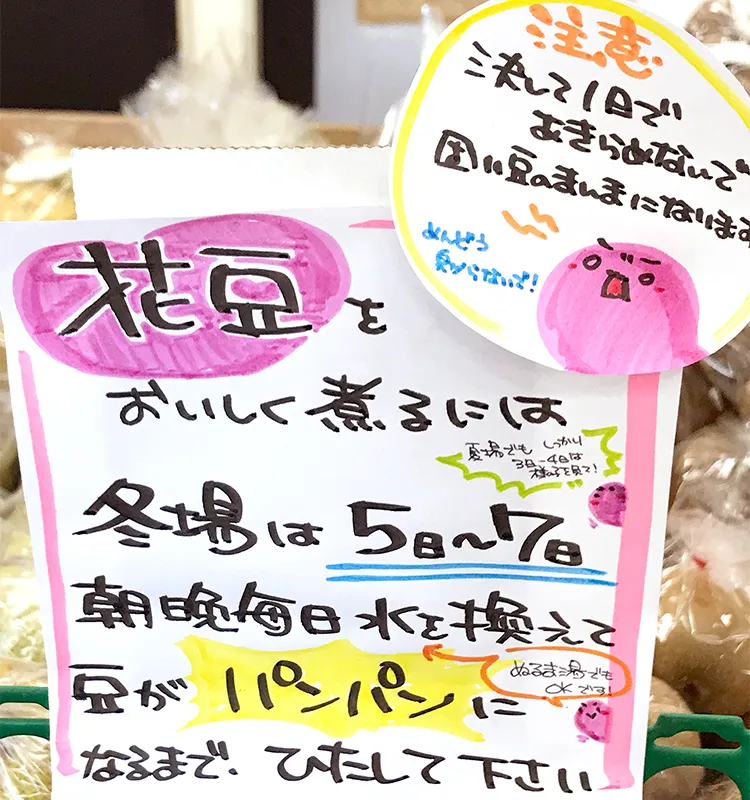 注意
決して1日で
あきらめないで
固い豆のまんまになります
めんどう
臭がらないで!
花豆を
おいしく煮るには
夏場でも しっかり
3日〜4日は
様子を見て!
冬場は5日〜7日
朝晩毎日水を換えて
豆がパンパンに
ぬるま湯でも
OKです!
なるまで!ひたして下さい